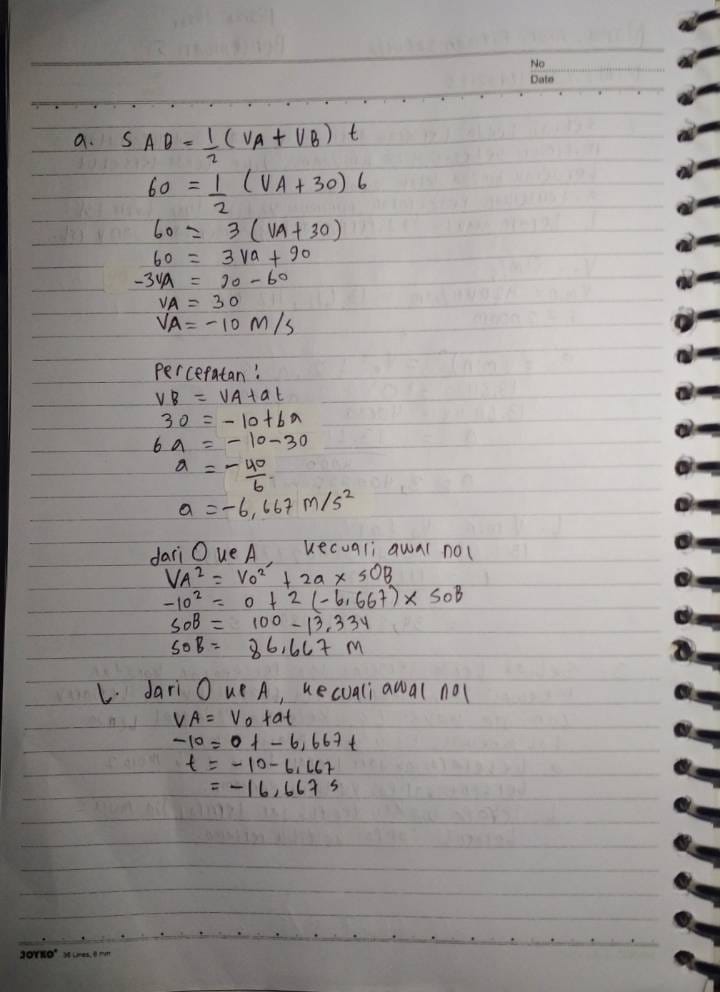 No
Date
a. SAB = 1/2 (VA + VB) t
60 = 1/2 (VA + 30) 6
60 = 3 (VA + 30)
60 = 3 Va + 90
-3VA = 90 - 60
VA = 30
VA = -10 M/s
Percepatan :
VB = VA + at
30 = -10 + 6a
6a = -10 - 30
a = -40/6
a = -6,667 M/s²
dari O ke A, kecuali awal nol
VA² = Vo² + 2a x SOB
-10² = 0 + 2 (-6,667) x SOB
SOB = 100 - 13,334
SOB = 86,667 M
b. dari O ke A, kecuali awal nol
VA = Vo + at
-10 = 0 + -6,667 t
t = -10 - 6,667
= -16,667 s
JOYKO 36 Lines, 8 mm